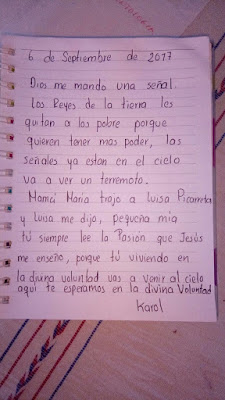 6 de Septiembre de 2017
Dios me mando una señal.
Los Reyes de la tierra les
quitan a los pobre porque
quieren tener mas poder, las
señales ya estan en el cielo
va a ver un terremoto.
Mamá María trajo a Luisa Picarreta
y Luisa me dijo, pequeña mia
tú siempre lee la Pasión que Jesús
me enseño, porque tú viviendo en
la divina voluntad vas a venir al cielo
aquí te esperamos en la divina Voluntad
Karol